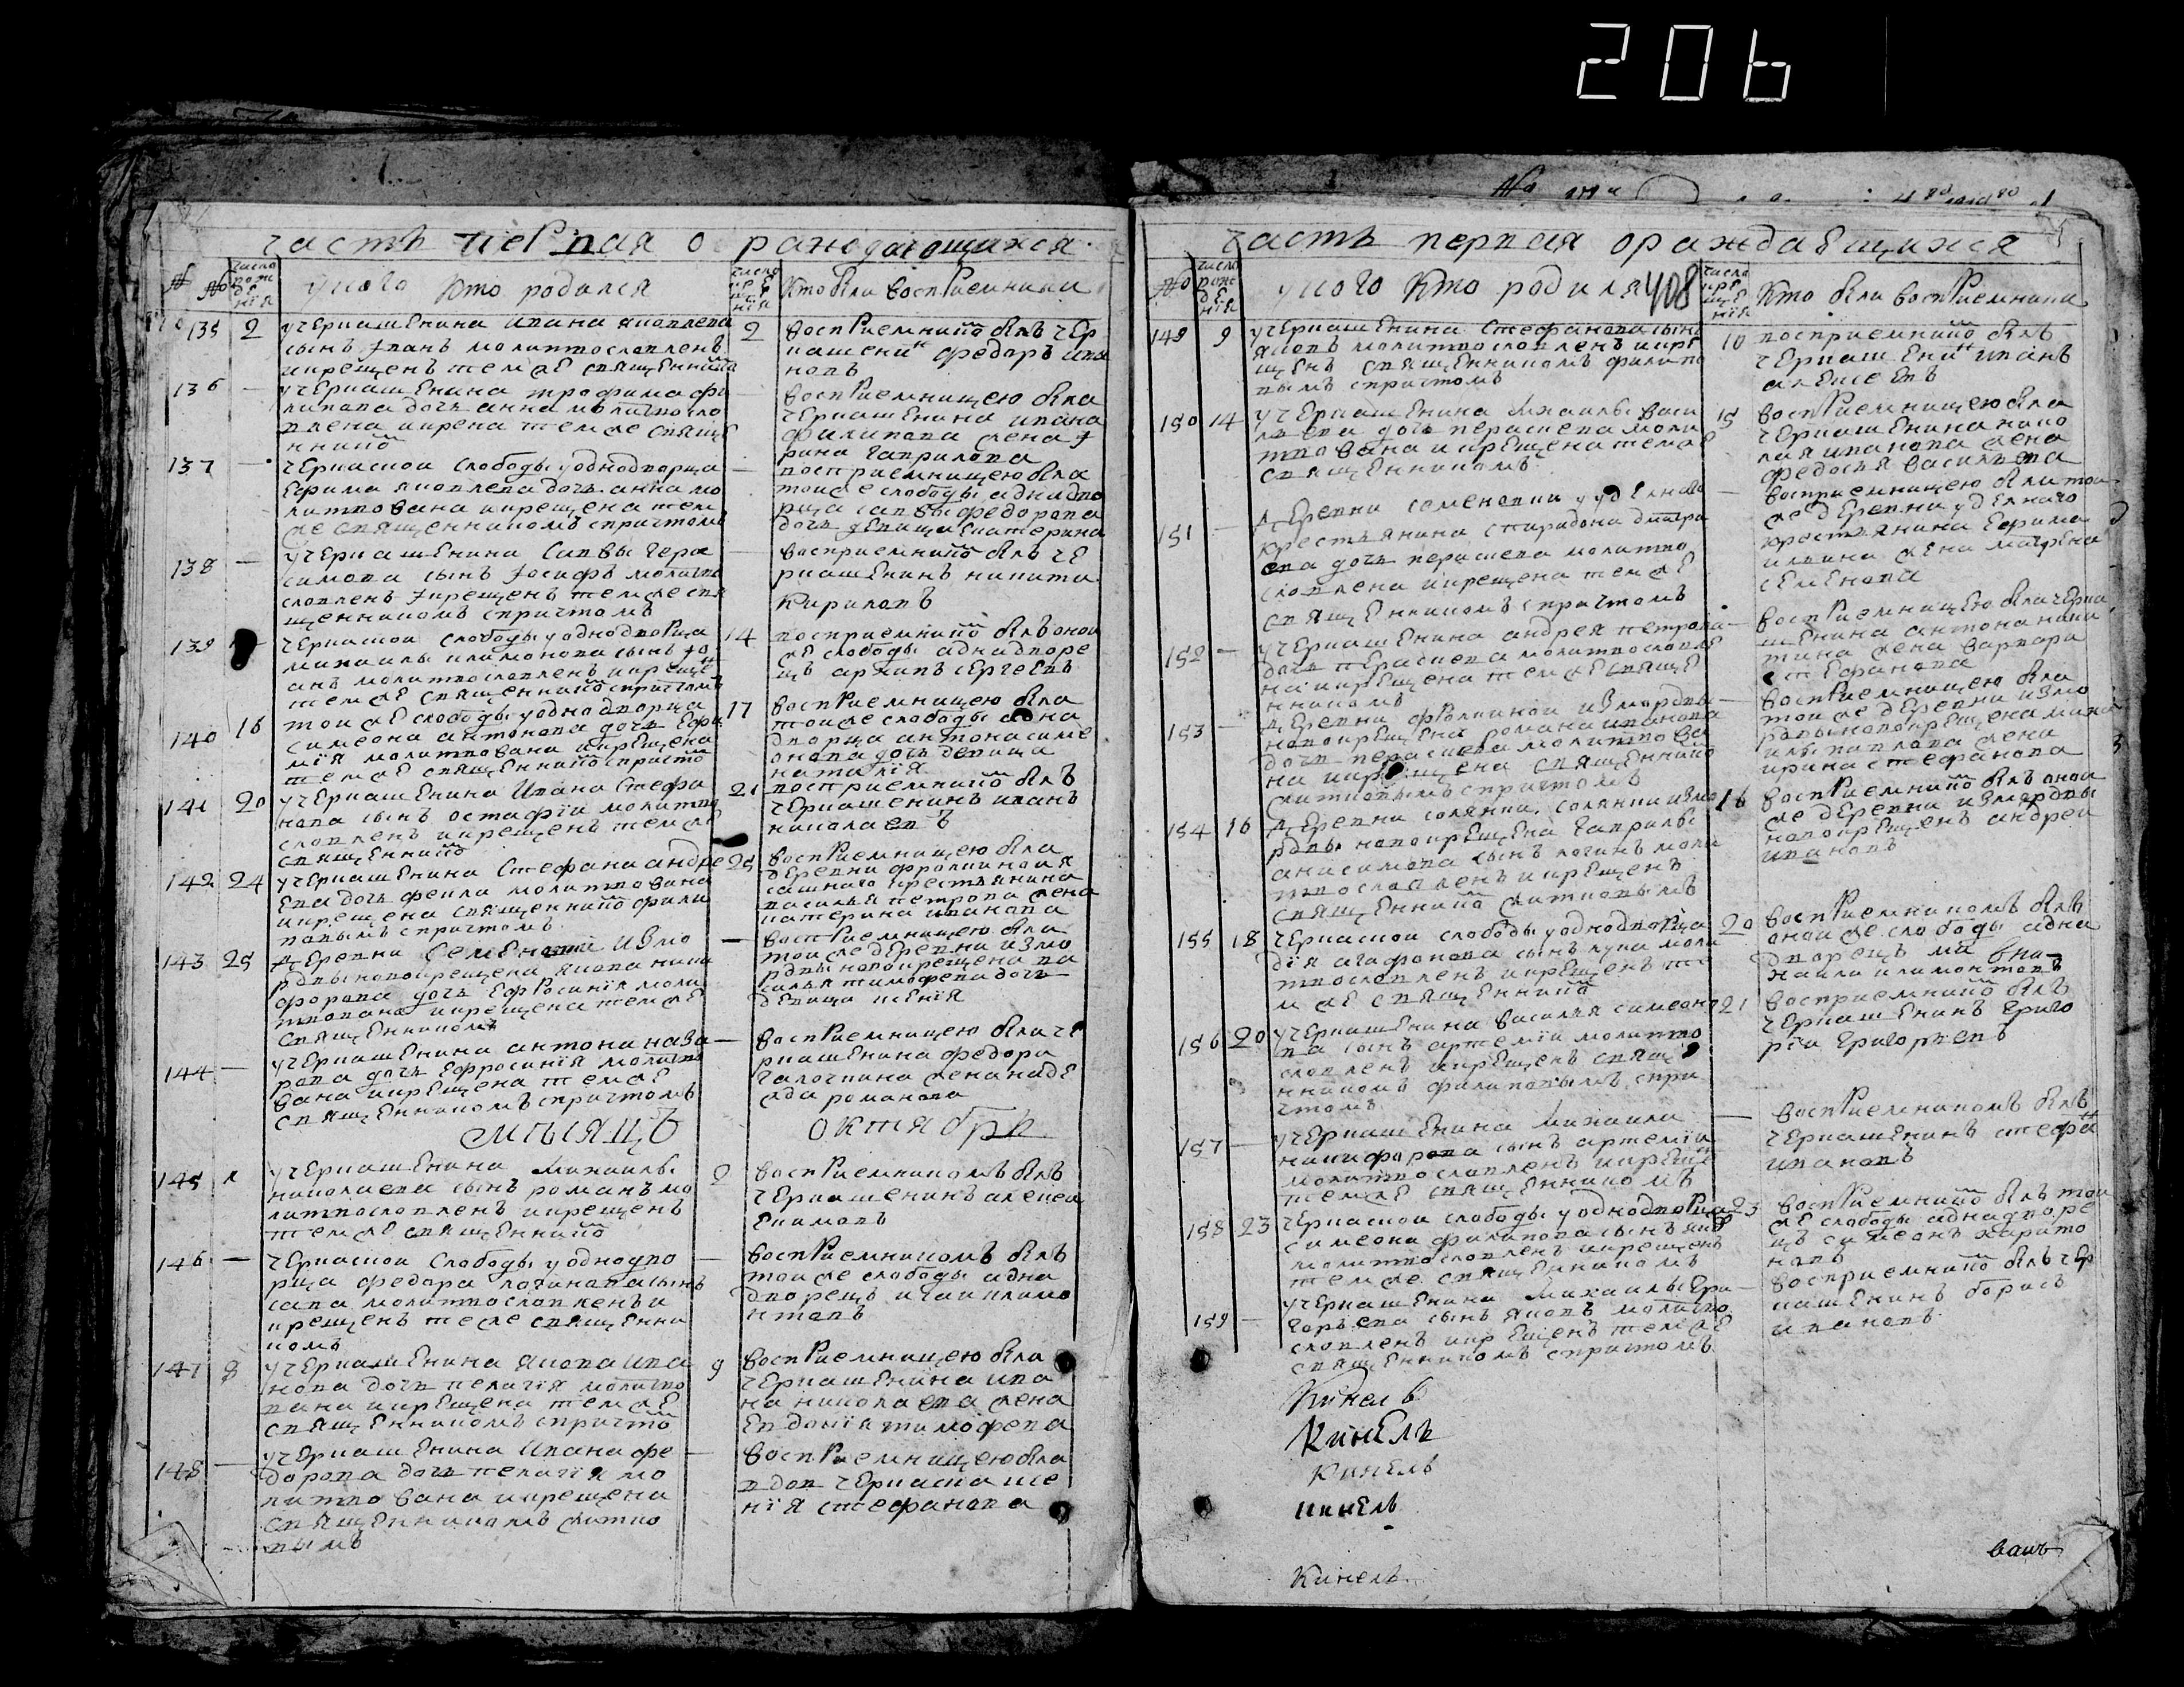 206
часть первая о раждающихся
№
число рождения
у кого кто родился
число крещения
Кто были восприемники
135
2
у черкашенина ивана яковлева
сынъ Iванъ молитвословленъ
и крещенъ темже священнико
2
восприемнико былъ чер
кашени федоръ ива
новъ
136
—
у черкашенина трофима фи
липова дочь анна молитвосло
влена и крещена темже свяще
ннико
—
восприемницею была
черкашенина ивана
филипова жена I
рина гаврилова
137
—
черкаской слободы у однодворца
Ефима яковлева дочь анна мо
литвована и крещена тем
же священникомъ спричтомъ
—
восприемницею была
тоиже слободы однодво
рца саввы федорова
дочь девица катерина
138
—
у черкашенина Саввы гера
симова сынъ Iосифъ молитво
словленъ Iкрещенъ темже свя
щенникомъ спричтомъ
восприемнико былъ че
ркашенинъ никита
Кириловъ
139
черкаской слободы у однодворца
михаилы иламонова сынъ Iо
анъ молитвословленъ и креще
темже священнико спричтомъ
14
восприемнико былъ оной
же слободы однадворе
цъ архипъ сергеевъ
140
16
тои же слободы у однодворца
симеона антонова дочь Ефи
мiя молитвована и крещена
темже священнико спричто
17
восприемницею была
тоиже слободы одна
дворца антона симе
онова дочь девица
наталiя
141
20
у черкашенина Ивана Стефа
нова сынъ остафiи молитво
словленъ и крещенъ темже
священнико
21
восприемнико былъ
черкашенинъ иванъ
николаевъ
142
24
у черкашенина Стефана андре
ева дочь фекла молитвована
и крещена священнико фили
повымъ спричтомъ
25
восприемницею была
деревни фролкиной я
сашнаго крестьянина
василья петрова жена
катерина иванова
143
25
деревни Семеновки Измо
рдвы новокрещена якова ники
форова дочь Ефросинiя моли
твована и крещена темже
священникомъ
—
восприемницею была
тоиже деревни измо
рдвы новокрещена ва
силья тимофеева дочь
девица ксенiя
144
—
у черкашенина антона наза
рова дочь Ефросинiя молитво
вана и крещена темже
священникомъ спричтомъ
—
восприемницею была че
ркашенина федора
галочкина жена наде
жда романова
месяцъ
октября
145
1
у черкашенина Михаилы
николаева сынъ романъ мо
литвословленъ и крещенъ
темже священнико
2
восприемникомъ былъ
черкашенинъ алексеи
Екимовъ
146
—
черкаской Слободы у однодво
рца федора логинова сынъ
сава молитвословленъ и
крещенъ темже священни
комъ
—
восприемникомъ былъ
тоиже слободы одна
дворецъ исаи иламо
нтовъ
147
8
у черкашенина якова ива
нова дочь пелагiя молитво
вана и крещена темже
священникомъ спричто
9
восприемницею была
черкашенина ива
на николаева жена
Евдокiя тимофеева
148
—
у черкашенина Ивана фе
дорова дочь пелагiя мо
литвована и крещена
священникомъ житко
вымъ
—
восприемницею была
вдов черкаска ксе
нiя стефанова
часть первая о раждаѣщихся
№
число рождения
у кого Кто родился
408
число крещения
Кто были восприемники
149
9
у черкашенина Стефанова сынъ
яковъ молитвословленъ и кре
щенъ священникомъ филипо
вымъ спричтомъ
10
восприемнико былъ
черкашени иванъ
алексеевъ
150
14
у черкашенина Михаилы васи
льева дочь пераскева моли
твована и крещена темже
священникомъ
15
восприемницею была
черкашенина нико
лая иванова жена
федосья васильева
151
—
деревни семеновки у уделнаго
крестьянина спиридона дмитри
ева дочь пераскева молитво
словлена и крещена темже
священникомъ спричтомъ
—
восприемницею была тои
же деревни уделнаго
крестьянина Ефима
ильина жена матрена
семенова
152
—
у черкашенина андрея петрова
дочь пераскева молитвословле
на и крещена темже свяще
нникомъ
—
восприемницею была черка
шенина антона ники
тина жена варвара
стефанова
153
—
деревни фролкиной измордвы
новокрещена романа иванова
дочь пераскева молитвова
на и крещена священнико
житковымъ спричтомъ
—
восприемницею была
тоиже деревни измо
рдвы новокрещена миха
илы павлова жена
ирина стефанова
154
16
деревни солянки, солянки измо
рдвы новокрещена гаврилы
анисимова сынъ логинъ моли
твословленъ и крещенъ
священнико житковымъ
16
восприемнико былъ оной
же деревни измордвы
новокрещенъ андреи
ивановъ
155
18
черкаской слободы у однодворца
дiя агафонова сынъ лука моли
твословленъ и крещенъ те
мже священнико
20
восприемникомъ былъ
оной же слободы одна
дворецъ ми
хаила иламонтовъ
156
20
у черкашенина Василья симеоно
ва сынъ артемiи молитво
словленъ и крещенъ свяще
нникомъ филиповымъ спри
чтомъ
21
восприемнико былъ
черкашенинъ григо
рiи григорьевъ
157
—
у черкашенина Михаила
никифорова сынъ артемiи
молитвословленъ и креще
темже священникомъ
—
восприемникомъ былъ
черкашенинъ стефа
ивановъ
158
23
черкаской слободы у однодворца
симеона филипова сынъ яков
молитвословленъ и крещенъ
темже священникомъ
23
восприемнико былъ тои
же слободы однадворе
цъ симеонъ харито
новъ
159
—
у черкашенина Михаилы гри
горьева сынъ яковъ молитво
словленъ и крещенъ темже
священникомъ спричтомъ
восприемнико былъ чер
кашенинъ борисъ
ивановъ
Кинель
Кинель
Кинель
кинель
Кинель